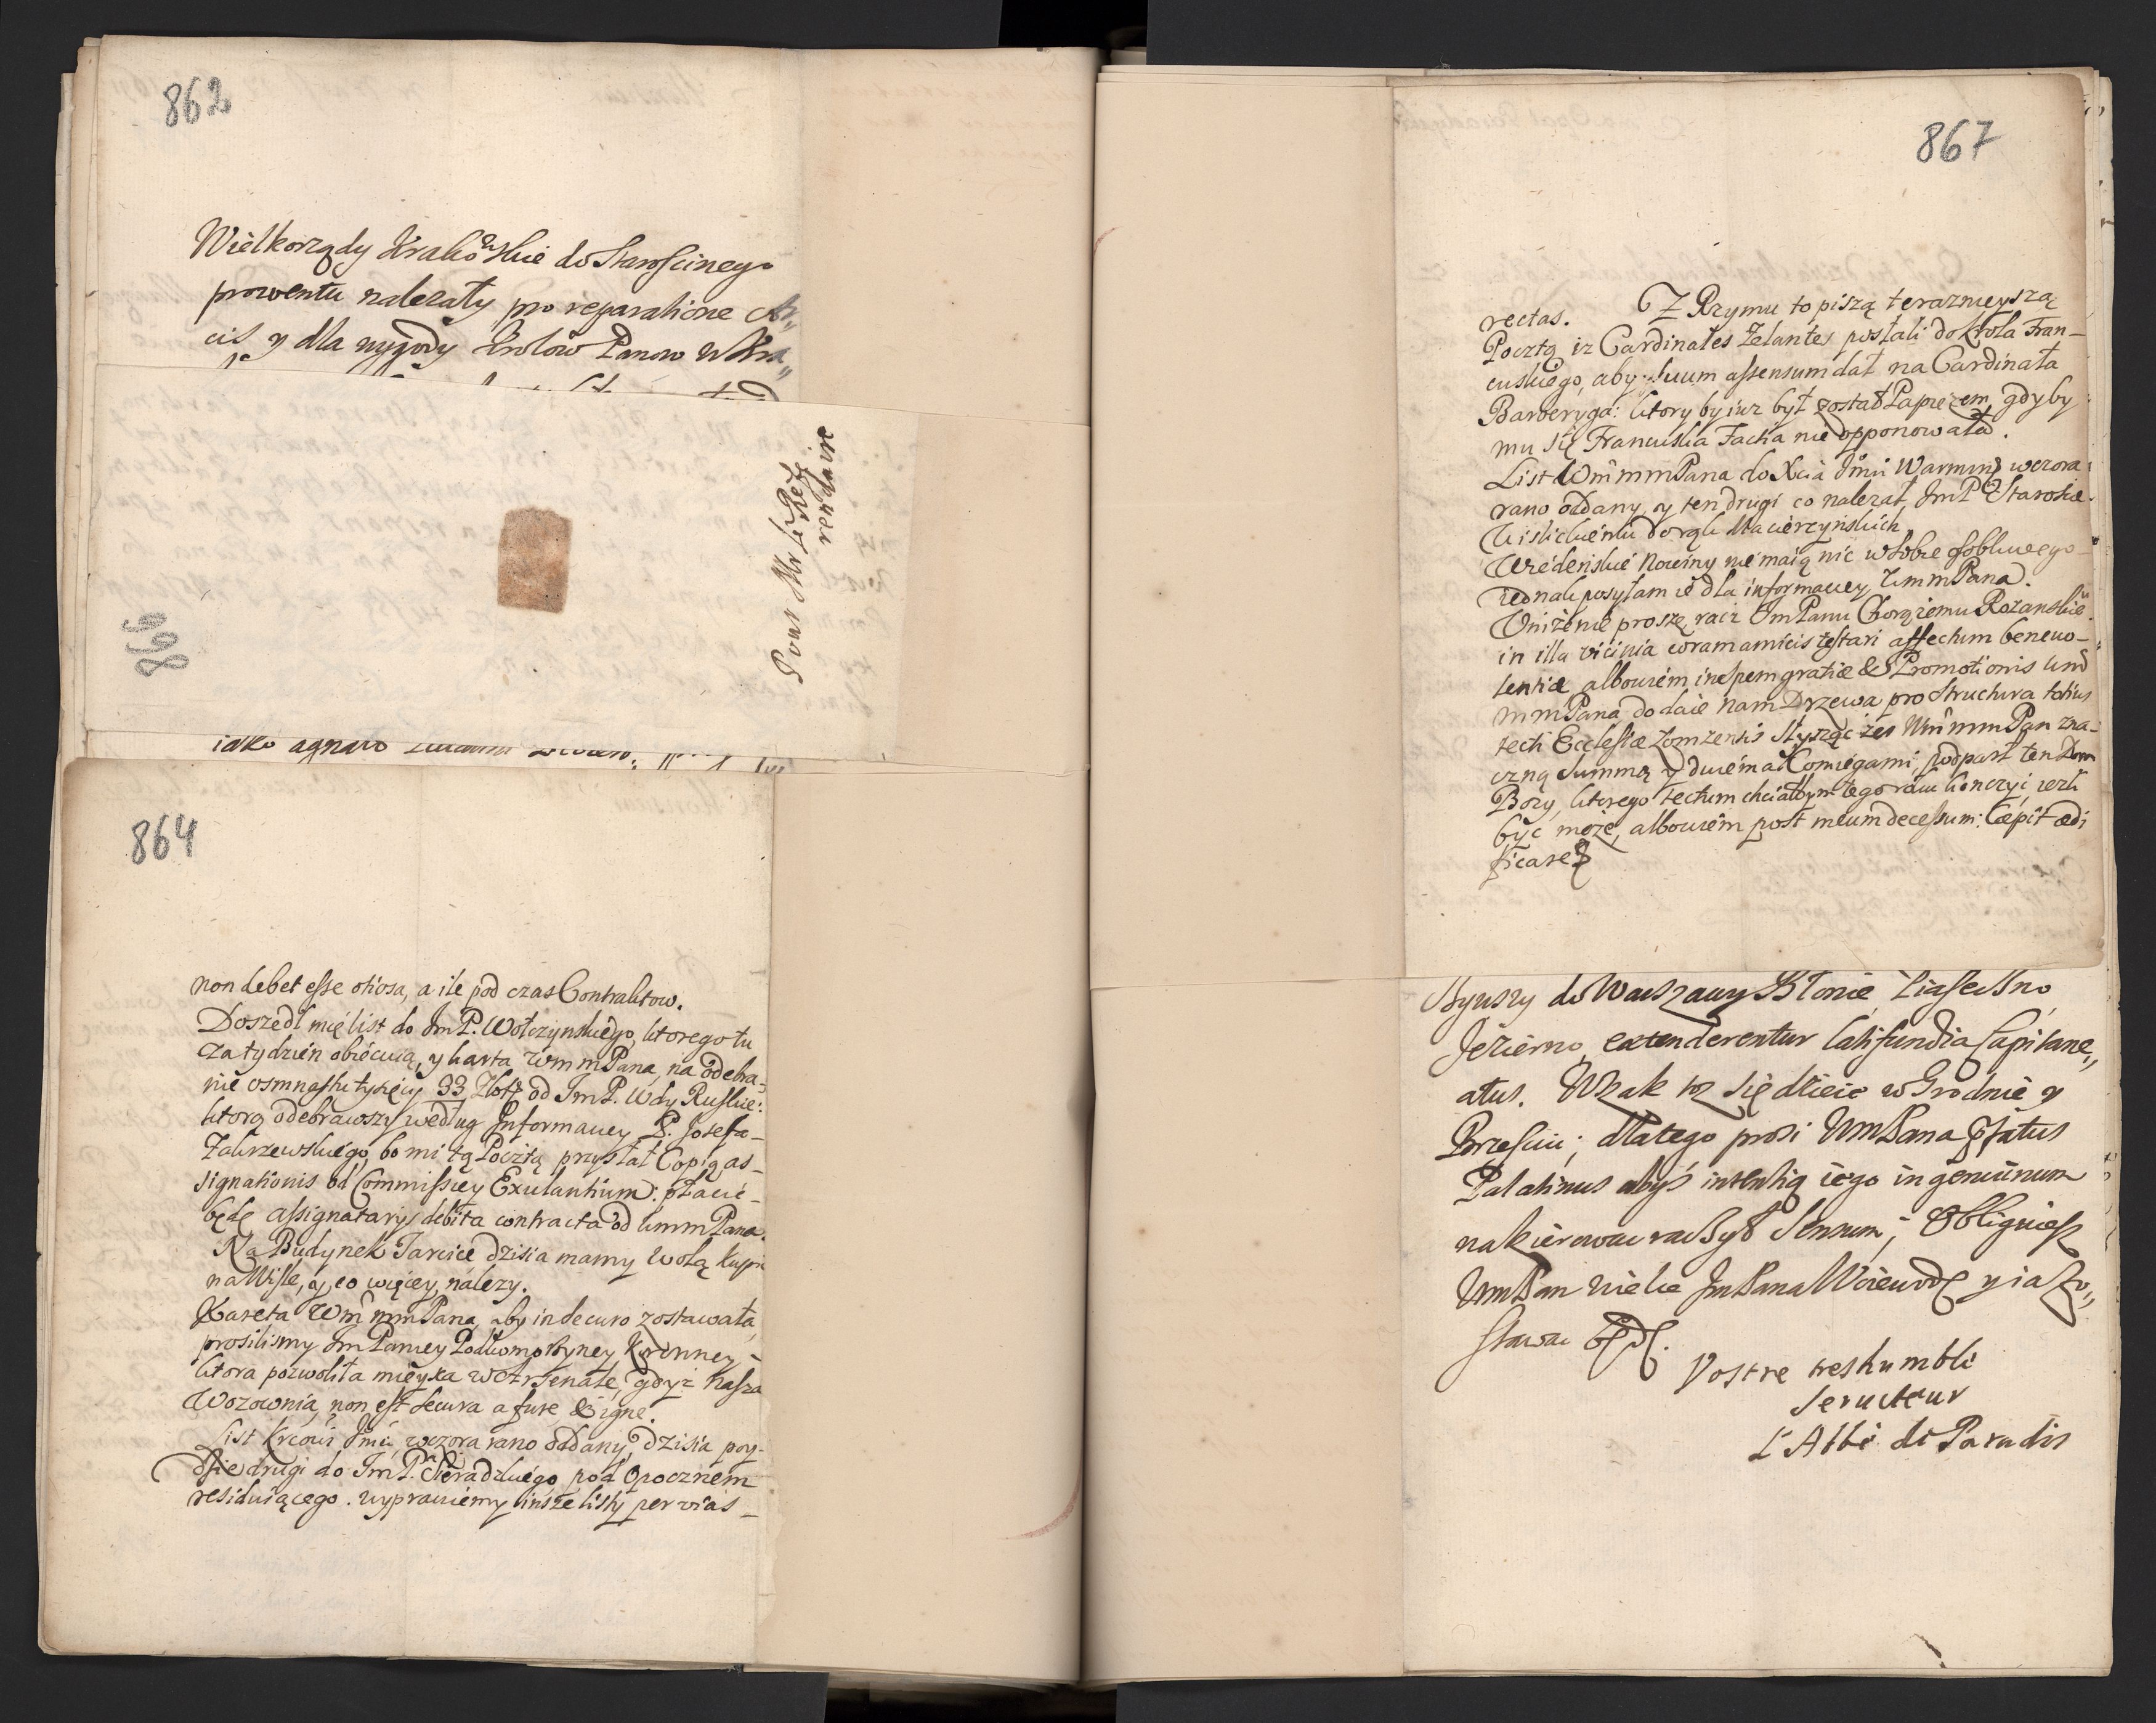 862
Wielkorządy Krakowskie do Starościnego
prowentu należały pro reparatione Ar„
cis, y dla wygody Krolow Panow w Kra„
Pour Mr le Refe
rendaire
866
iako
864
non debet esse otiosa, a ile pod czas Contraktow.
Doszedł mię list do Jm P. Wołczynskiego, ktorego tu
za tydzień obiecuią, y karta Wm m Pana, na odebra-
nie osmnastu tysięcy 33 Złotͤ od Jm P. Wdy Ruskie:
ktorą odebrawszy według Informacyey P. Josefa
Zakrzewskiego, bo mi tą Pocztą przysłał Copią as-
signationis od Commissiey Exulantium: płacić
będę assignatarys debita contracta od Wmm Pana.
Na Budynek Tarcice dzisia mamy wolą kupić
na Wisle, y co więcey należy.
Kareta Wm mm Pana, aby in securo zostawała,
prosilismy Jm Paniey Podkomorzyney Koronney,
ktora pozwoliła mieysca w Arsenale, gdyż nasza
Wozownia, non est secura a fure & igne.
List Jmci, wczora rano oddany, dzisia poy-
dzie drugi do Jm P. Sieradzkiego, pod Opocznem
residuiącego. wyprawiemy insze listy per vias
867
rectas. Z Rzymu to piszą teraznieyszą
Pocztą iz Cardinales Zelantes posłali do Krola Fran-
cuskiego, aby suum assensum dał na Cardinała
Barberyga: ktory by iuz był został Papiezem, gdyby
mu się Francuska Factia nie opponowała.
List Wm mm Pana do Xcia Jmci Warmin wczora
rano oddany, y ten drugi co należał Jm P Staroście
Wislickiemu do rąk Macierzyńskich
Wiedeńskie Nowiny nie maią nic w sobie osobliwego
iednak posyłam ie dla informacyey Wmm Pana.
Uniżenie proszę, racz Jm Panu Chorążemu Rozanskie
in illa vicinia coram amicis testari affectum benevo-
lentiæ, albowiem in spem gratiæ & Promotionis Wm
mm Pana, dodaie nam Drzewa pro structura totius
tecti Ecclesiæ Łomzensis słysząc żeś Wm mm Pan zna-
czną Summą y dwiema podparł ten Dom
Boży, ktorego tectum chciałbym tego roku konczyć, ieżli
być może, albowiem post meum decessum: Cæpit ædi
ficare
do Warszawy Błonie, Piaseczno,
Jezierno, extenderentur latifundia Capitane„
atus. Wszak to się dzieie w Grodnie y
Brzesciu; dlatego prosi Wm Pana
Palatinus abyś intentią iego in genuinum
nakierować raczył sensum; Obligniesz
Wm Pan wielce Jm Pana Woiewodę y ia Zo„
stawać będę.
Vostre treshumble
Serviteur
L'Abbé de Paradis